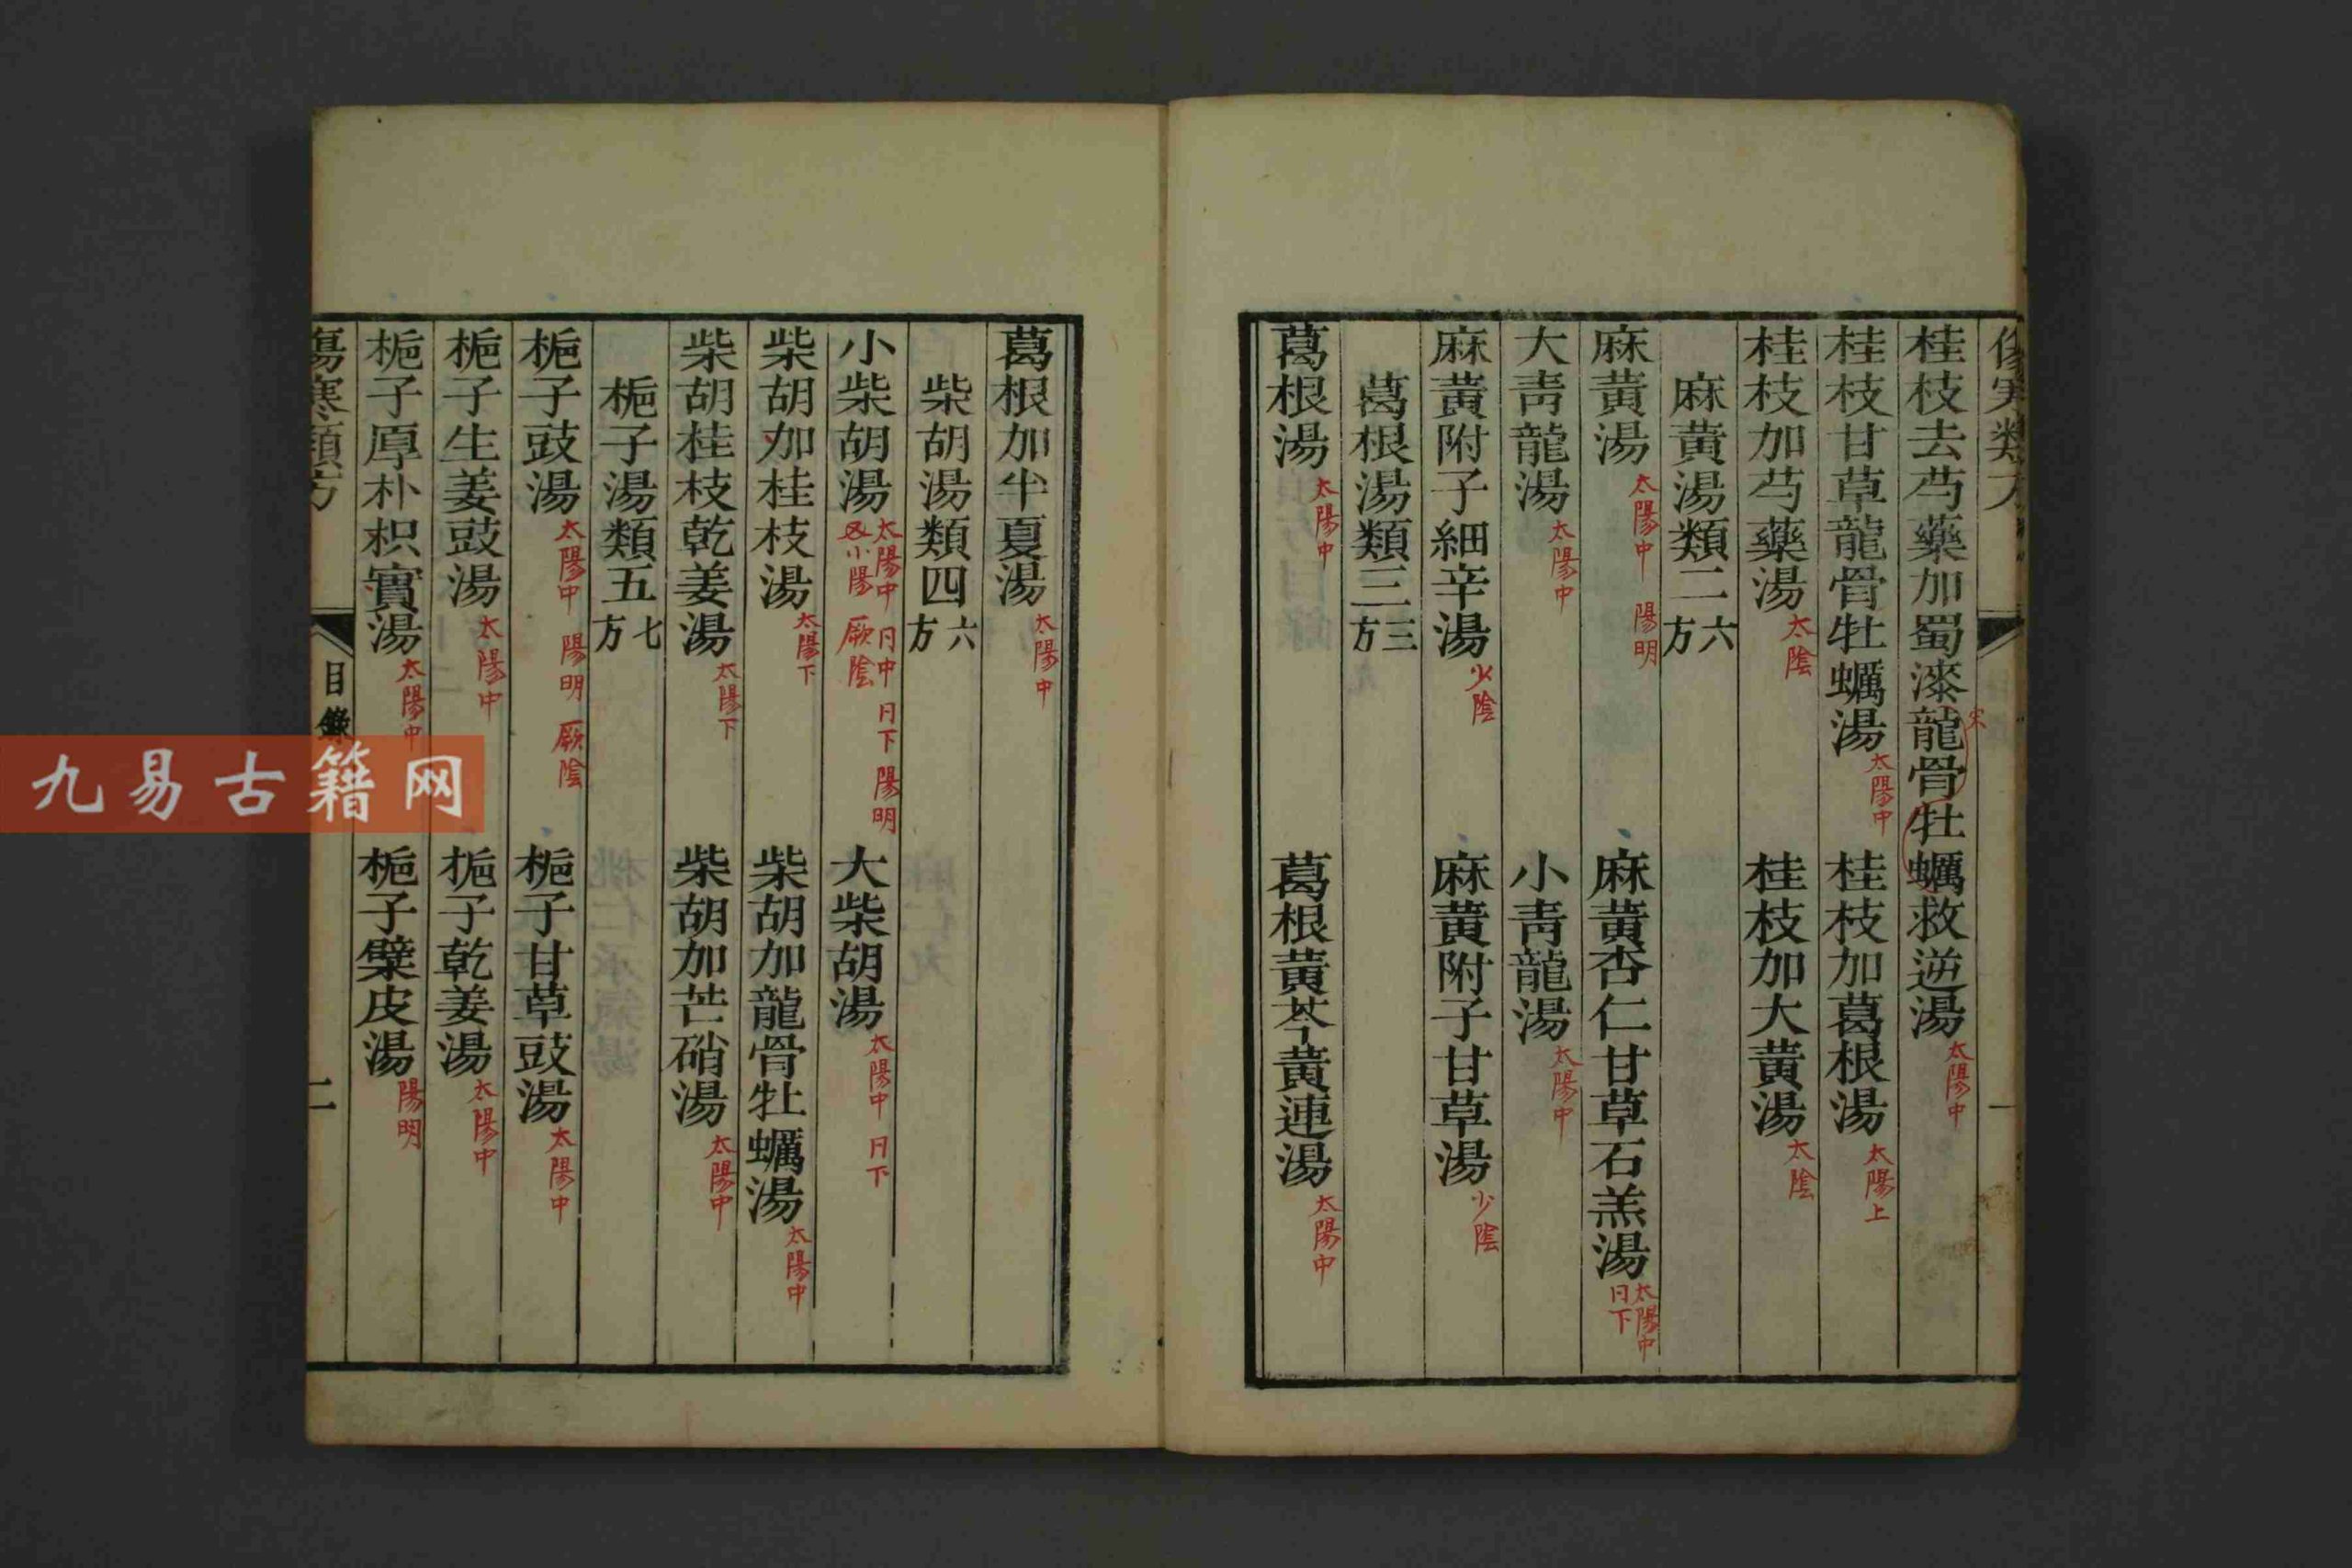 傷寒類方
一
桂枝去芍藥加蜀漆龍骨牡蠣救逆湯 太陽中
宋
桂枝甘草龍骨牡蠣湯 太陽中 桂枝加葛根湯 太陽上
桂枝加芍藥湯 太陰 桂枝加大黃湯 太陰
麻黃湯類二 六方
麻黃湯 太陽中 陽明 麻黃杏仁甘草石羔湯 太陽中 日下
大青龍湯 太陽中 小青龍湯 太陽中
麻黃附子細辛湯 少陰 麻黃附子甘草湯 少陰
葛根湯類三 三方
葛根湯 太陽中 葛根黃芩黃連湯 太陽中
葛根加半夏湯 太陽中
柴胡湯類四 六方
小柴胡湯 太陽中 日中 日下 陽明 又小陽 厥陰 大柴胡湯 太陽中 日下
柴胡加桂枝湯 太陽下 柴胡加龍骨牡蠣湯 太陽中
柴胡桂枝乾姜湯 太陽下 柴胡加芒硝湯 太陽中
梔子湯類五 七方
梔子豉湯 太陽中 陽明 厥陰 梔子甘草豉湯 太陽中
梔子生姜豉湯 太陽中 梔子乾姜湯 太陽中
梔子厚朴枳實湯 太陽中 梔子檗皮湯 陽明
傷寒類方 目錄 二
九易古籍网